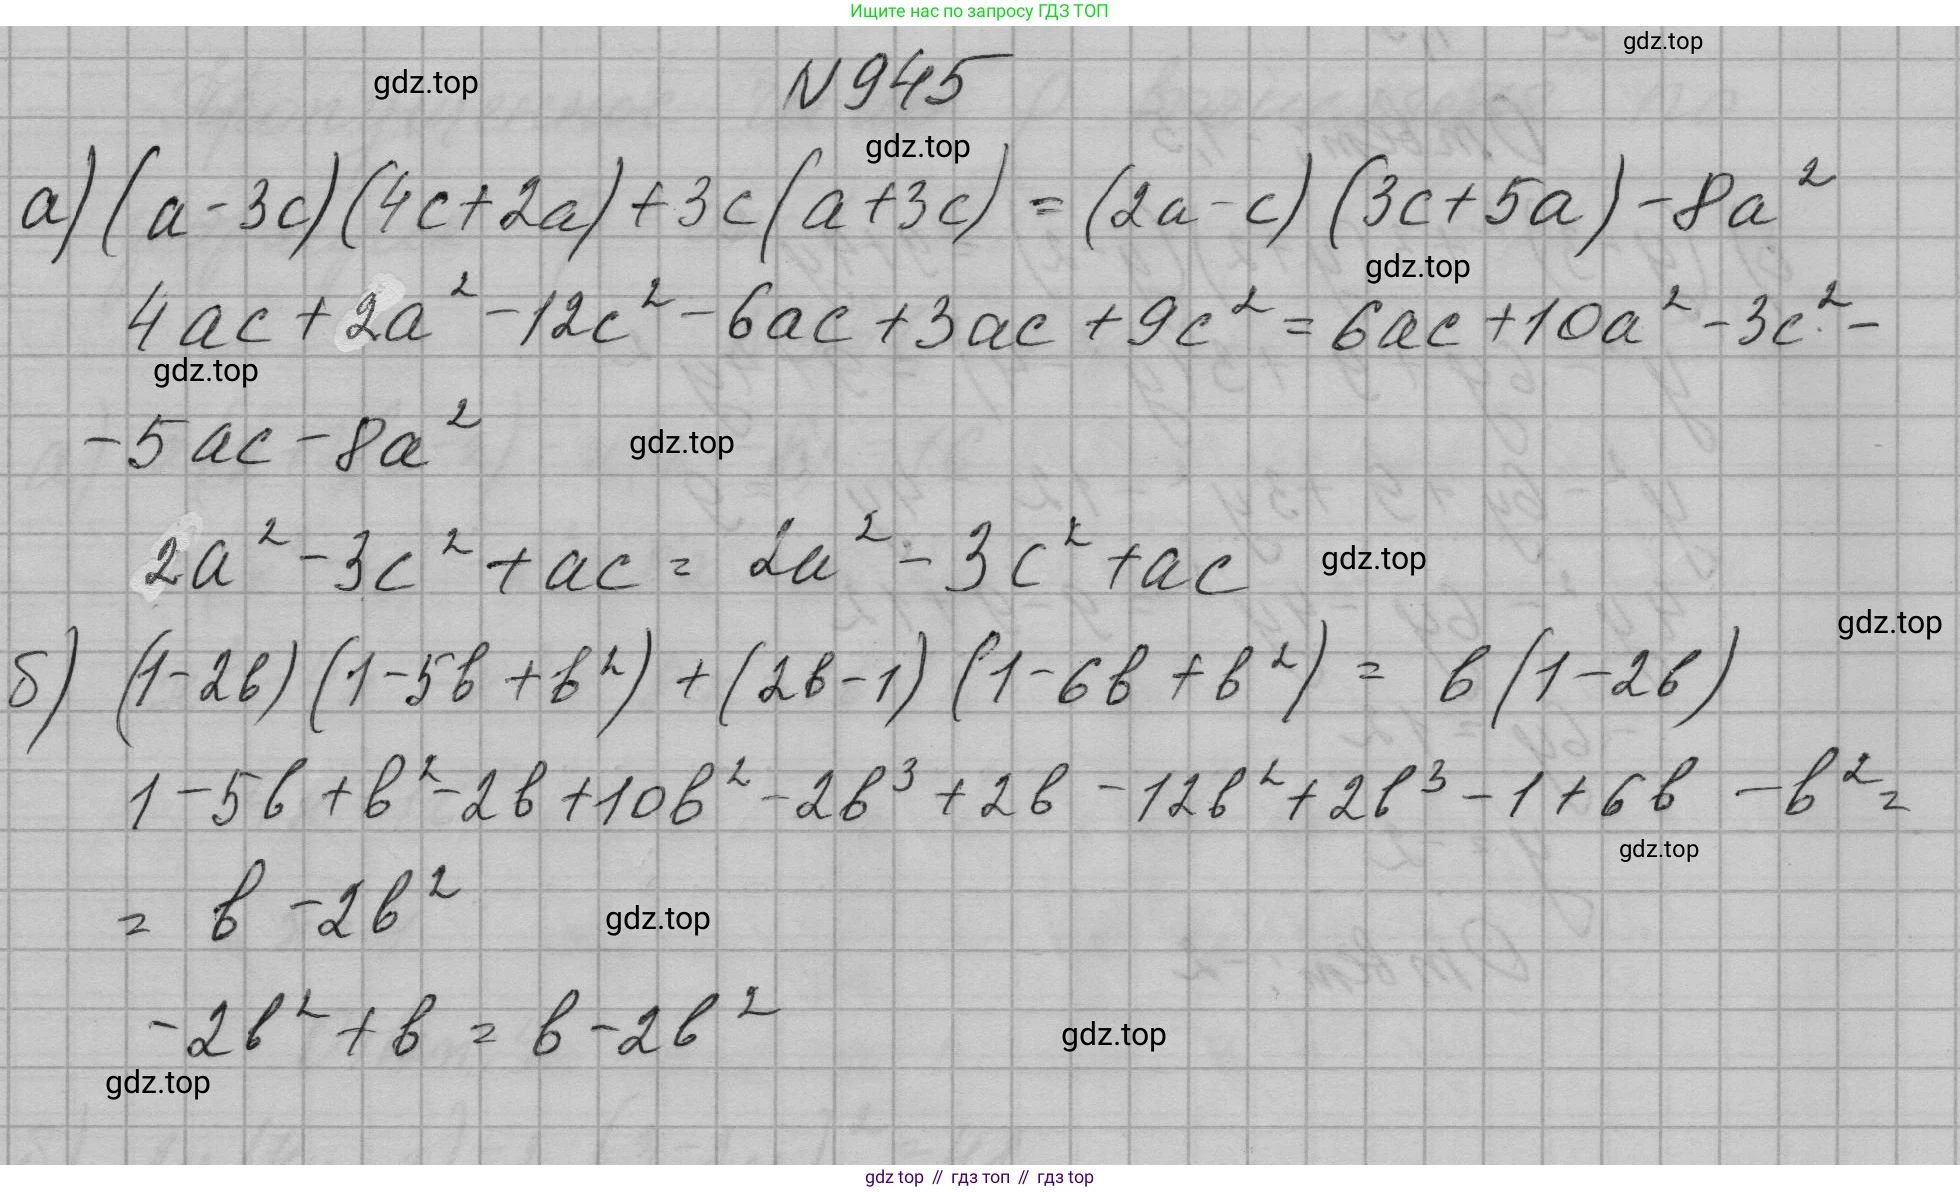 Ищите нас по запросу ГДЗ ТОП
gdz.top
gdz.top
N 945
gdz.top
а) (a - 3c)(4c + 2a) + 3c(a + 3c) = (2a - c)(3c + 5a) - 8a²
gdz.top
4ac + 2a² - 12c² - 6ac + 3ac + 9c² = 6ac + 10a² - 3c² -
gdz.top
- 5ac - 8a²
gdz.top
2a² - 3c² + ac = 2a² - 3c² + ac
gdz.top
gdz.top
б) (1 - 2b)(1 - 5b + b²) + (2b - 1)(1 - 6b + b²) = b(1 - 2b)
1 - 5b + b² - 2b + 10b² - 2b³ + 2b - 12b² + 2b³ - 1 + 6b - b² =
gdz.top
= b - 2b²
gdz.top
- 2b² + b = b - 2b²
gdz.top
gdz.top
gdz top // гдз топ // гдз top